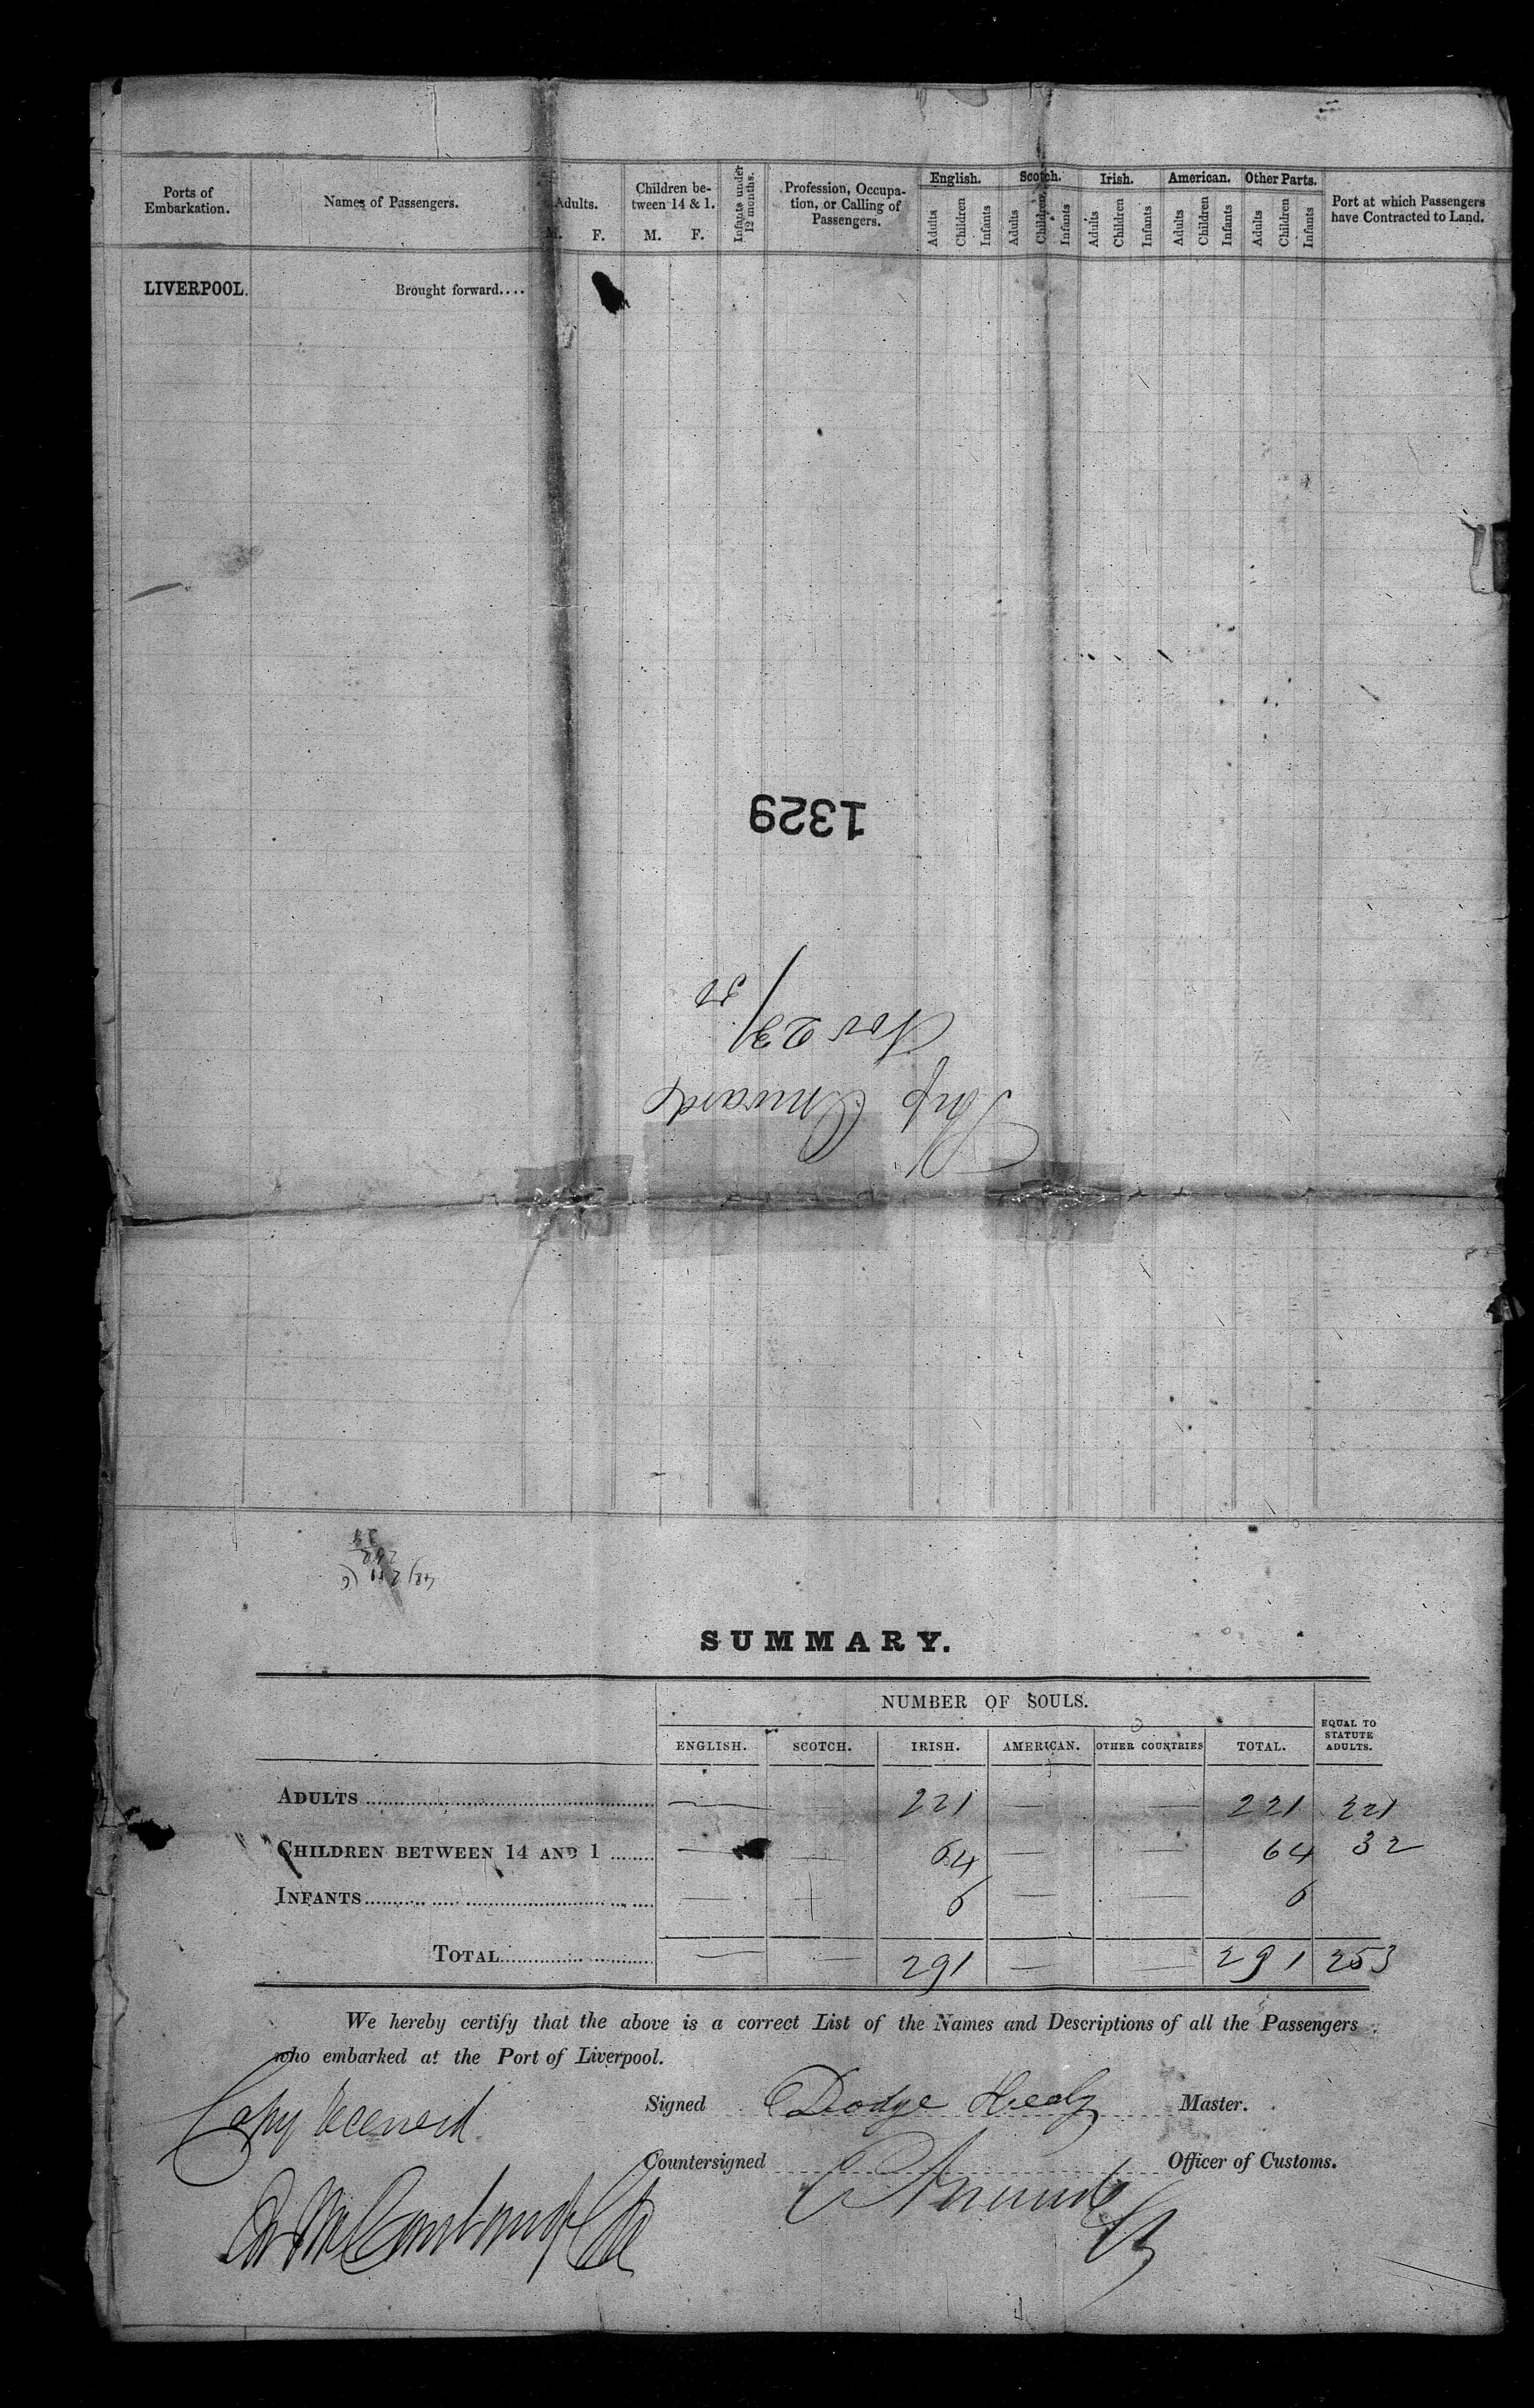 Ports of Embarkation. Names of Passengers. Adults. M. F. Children between 14 & 1. M. F. Infants under 12 months. Profession, Occupation, or Calling of Passengers. English. Adults Children Infants Scotch. Adults Children Infants Irish. Adults Children Infants American. Adults Children Infants Other Parts. Adults Children Infants Port at which Passengers have Contracted to Land.
LIVERPOOL. Brought forward....
1329
Nov 23/
Ship Onward
SUMMARY.
NUMBER OF SOULS.
ENGLISH. SCOTCH. IRISH. AMERICAN. OTHER COUNTRIES TOTAL. EQUAL TO STATUTE ADULTS.
ADULTS — — 221 — — 221 221
CHILDREN BETWEEN 14 AND 1 — — 64 — — 64 32
INFANTS — — 6 — — 6
TOTAL — — 291 — — 291 253
We hereby certify that the above is a correct List of the Names and Descriptions of all the Passengers
who embarked at the Port of Liverpool.
Signed Dodge Healy Master.
Copy Received
Countersigned Officer of Customs.